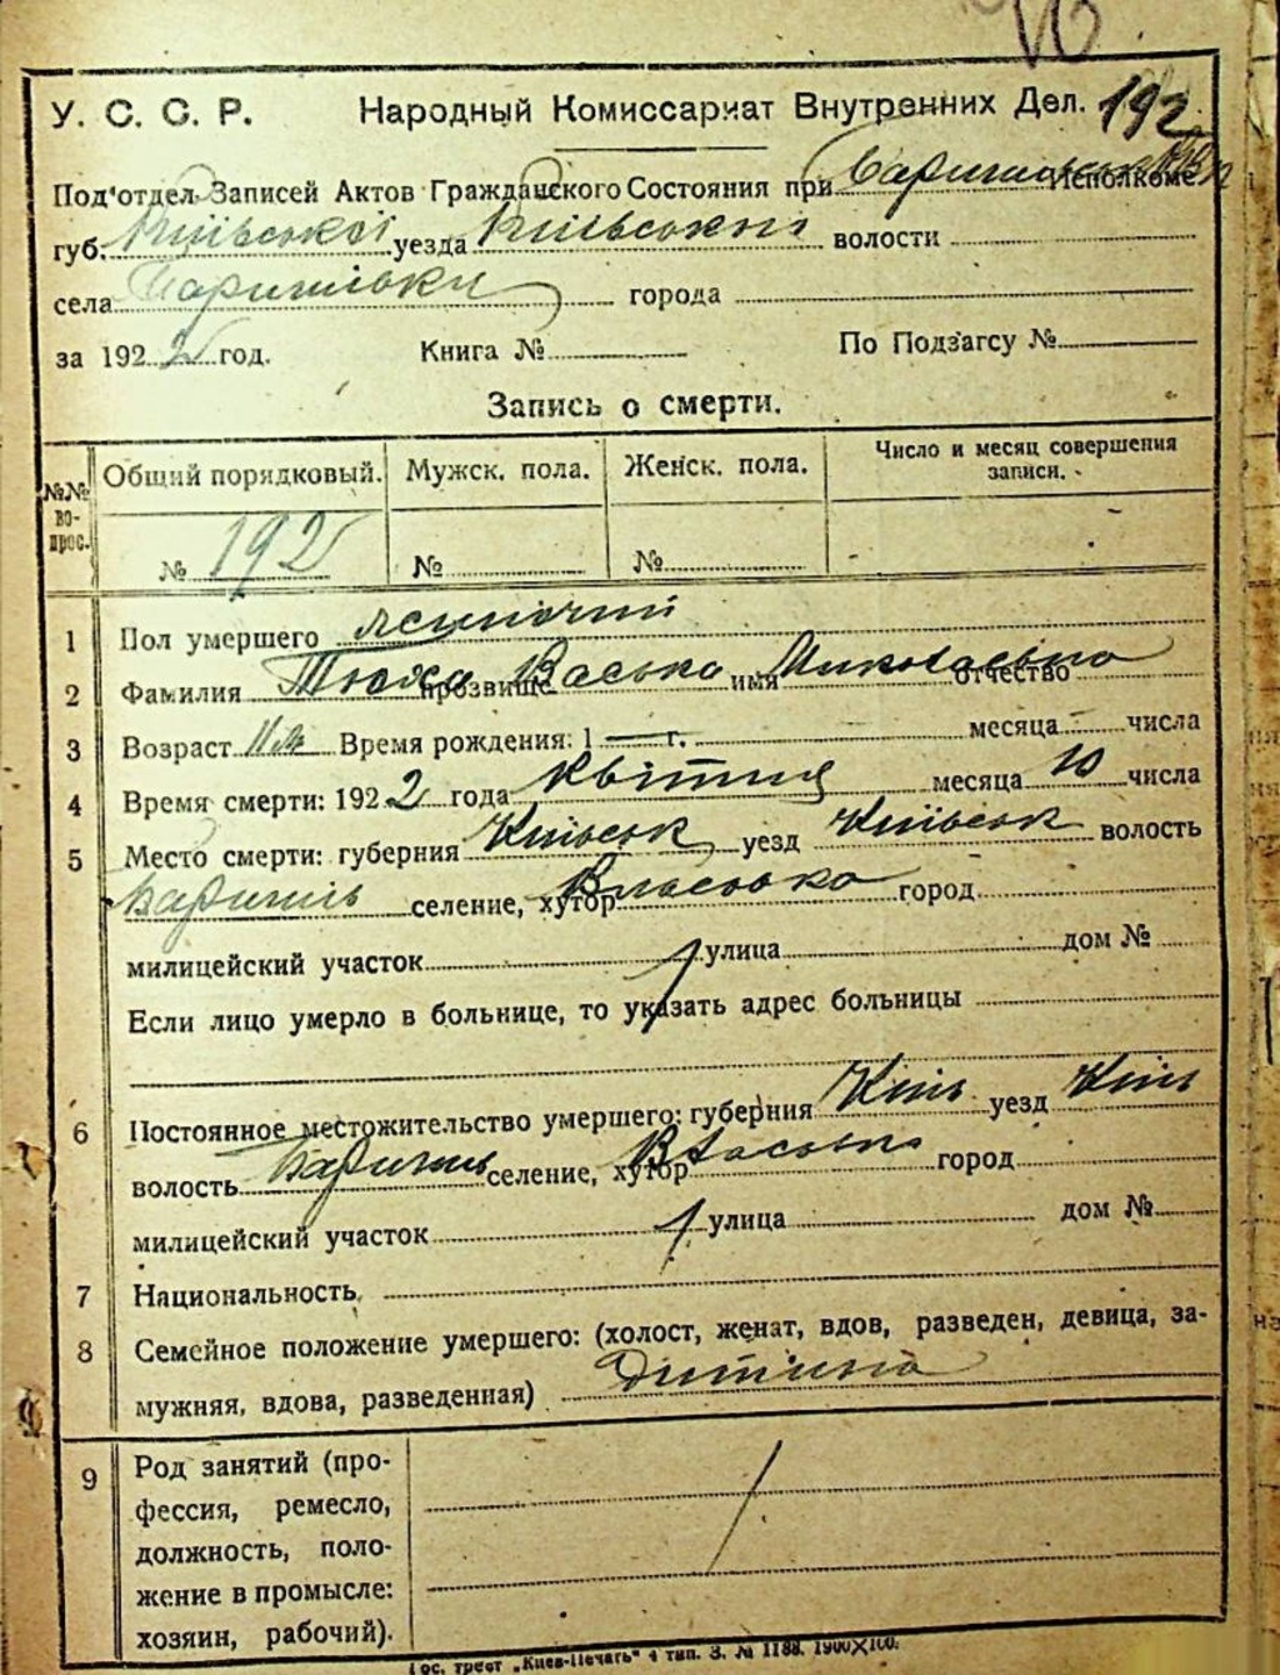 У. С. С. Р. Народный Комиссариат Внутренних Дел. 192
Под'отдел Записей Актов Гражданского Состояния при Исполкоме
губ. Київської уезда Київський волости
села Баришівки города
за 1922 год. Книга № По Подзагсу №
Запись о смерти.
№№ вопрос. Общий порядковый. Мужск. пола. Женск. пола. Число и месяц совершения записи.
№ 192 № №
1 Пол умершего жіночий
2 Фамилия Тюха прозвище Васька имя Миколаєвна отчество
3 Возраст Время рождения: 1 — г. месяца числа
4 Время смерти: 1922 года квітня месяца 10 числа
5 Место смерти: губерния Київськ уезд Київськ волость
Баришів селение, хутор Власовка город
милицейский участок улица дом №
Если лицо умерло в больнице, то указать адрес больницы
6 Постоянное местожительство умершего: губерния Київ уезд Київ
волость Баришів селение, хутор Власовка город
милицейский участок улица дом №
7 Национальность
8 Семейное положение умершего: (холост, женат, вдов, разведен, девица, за-
мужняя, вдова, разведенная) дитина
9 Род занятий (про-
фессия, ремесло,
должность, поло-
жение в промысле:
хозяин, рабочий).
Гос. трест „Киев-Печать“ 4 тип. З. № 1188. 1900×100.